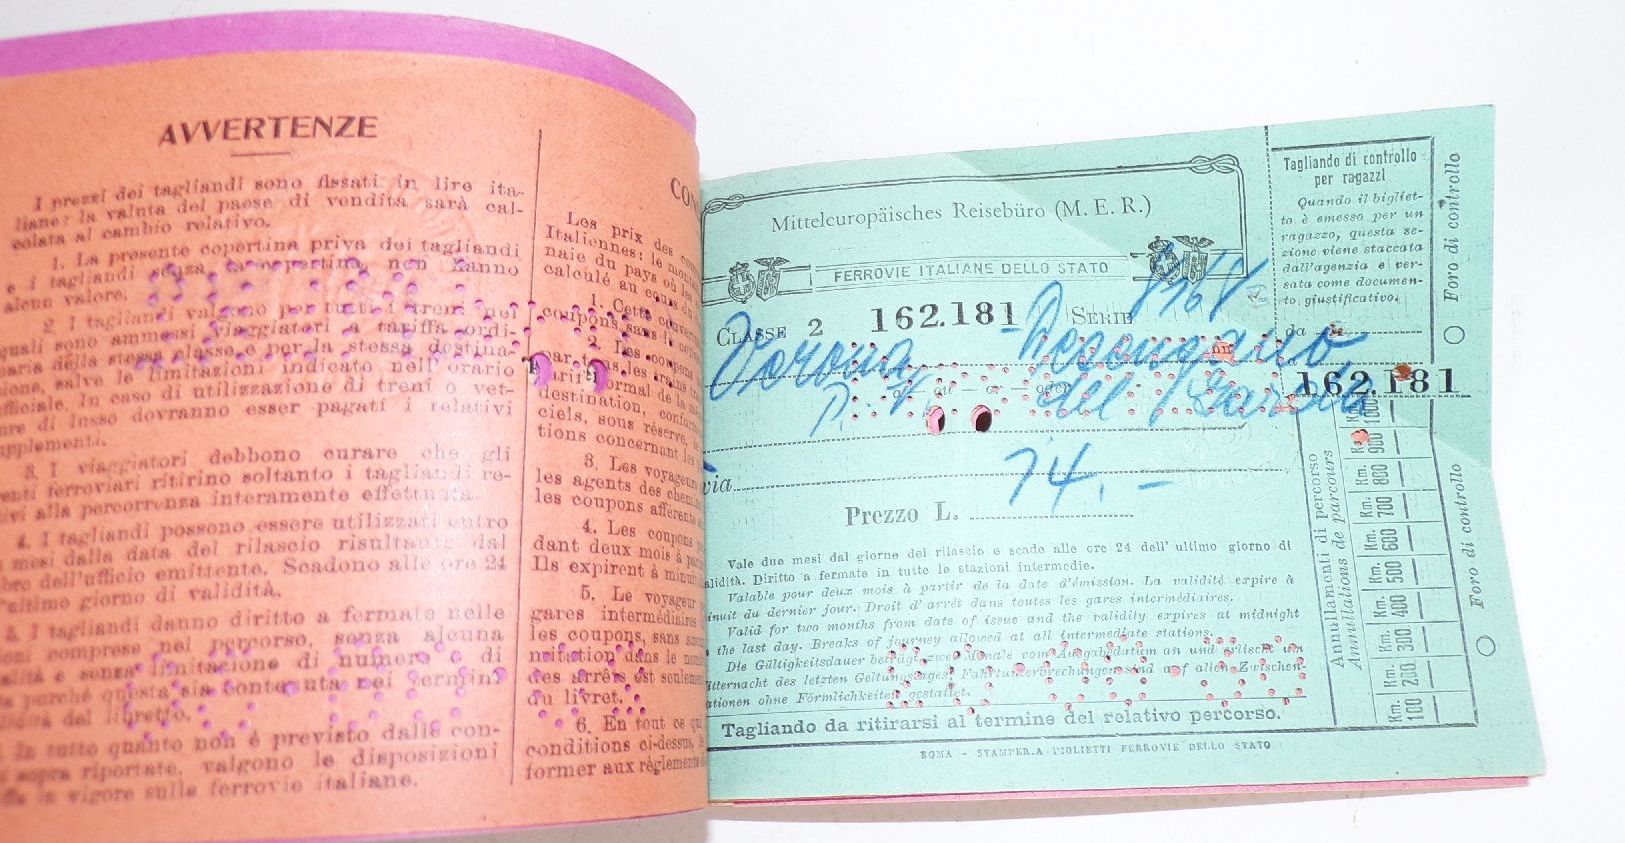 AVVERTENZE
I prezzi dei tagliandi sono fissati in lire ita-
liane: la valuta del paese di vendita sarà cal-
colata al cambio relativo.
1. La presente copertina priva dei tagliandi
e i tagliandi senza la copertina non hanno
alcun valore.
2. I tagliandi valgono per tutti i treni nei
quali sono ammessi viaggiatori a tariffa ordi-
naria della stessa classe e per la stessa destina-
zione, salve le limitazioni indicate nell'orario
ufficiale. In caso di utilizzazione di treni o vet-
ture di lusso dovranno esser pagati i relativi
supplementi.
3. I viaggiatori debbono curare che gli
enti ferroviari ritirino soltanto i tagliandi re-
ivi alla percorrenza interamente effettuata.
4. I tagliandi possono essere utilizzati entro
mesi dalla data del rilascio risultante dal
bro dell'ufficio emittente. Scadono alle ore 24
ultimo giorno di validità.
5. I tagliandi danno diritto a fermate nelle
oni comprese nel percorso, senza alcuna
alità e senza limitazione di numero e di
perchè questa sia contenuta nei termini
lidità del libretto.
In tutto quanto non è previsto dalle con-
sopra riportate, valgono le disposizioni
in vigore sulle ferrovie italiane.
CON
Les prix des
Italiennes: le
naie du pays où les
calculé au cours du
1. Cette couver
coupons sans la
2. Les coupons
par tous les trains
tarif normal de la
destination, confor
ciels, sous réserve,
tions concernant les
3. Les voyageurs
les agents des chemins
les coupons afférents
4. Les coupons
dant deux mois à p
Ils expirent à minuit
5. Le voyageur
gares intermédiaires
les coupons, sans
mitation dans le nom
des arrêts est seulem
du livret.
6. En tout ce qui
conditions ci-dessus,
former aux règlements
Mitteleuropäisches Reisebüro (M. E. R.)
FERROVIE ITALIANE DELLO STATO
8768
CLASSE 2 162.181 SERIE
Verona - Desenzano
P. N. ou - or - oder del Garda
via
74.-
Prezzo L.
Vale due mesi dal giorno del rilascio e scade alle ore 24 dell' ultimo giorno di
alidità. Diritto a fermate in tutte le stazioni intermedie.
Valable pour deux mois à partir de la date d'émission. La validité expire à
inuit du dernier jour. Droit d'arrêt dans toutes les gares intermédiaires.
Valid for two months from date of issue and the validity expires at midnight
the last day. Breaks of journey allowed at all intermediate stations.
Die Gültigkeitsdauer beträgt zwei Monate vom Ausgabedatum an und erlischt um
itternacht des letzten Geltungstages. Fahrtunterbrechungen sind auf allen Zwischen-
ationen ohne Förmlichkeiten gestattet.
Tagliando da ritirarsi al termine del relativo percorso.
ROMA - STAMPERIA BIGLIETTI FERROVIE DELLO STATO
Tagliando di controllo
per ragazzi
Quando il bigliet-
to è emesso per un
ragazzo, questa se-
zione viene staccata
dall'agenzia e ver-
sata come documen-
to giustificativo.
da
a
162.181
Annullamenti di percorso
Annullations de parcours
Km. 1000
Km. 900
Km. 800
Km. 700
Km. 600
Km. 500
Km. 400
Km. 300
Km. 200
Km. 100
Foro di controllo
Foro di controllo